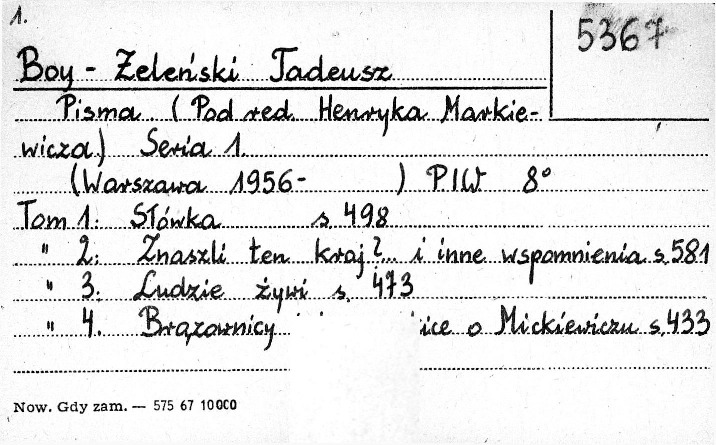 1.
5367
Boy - Żeleński Tadeusz
Pisma (Pod red. Henryka Markie-
wicza) Seria 1.
(Warszawa 1956- ) PIW 8°
Tom 1: Słówka s. 498
" 2: Znaszli ten kraj?... i inne wspomnienia s. 581
" 3. Ludzie żywi s. 473
" 4. Brązownicy ice o Mickiewiczu s. 433
Now. Gdy zam. — 575 67 10000